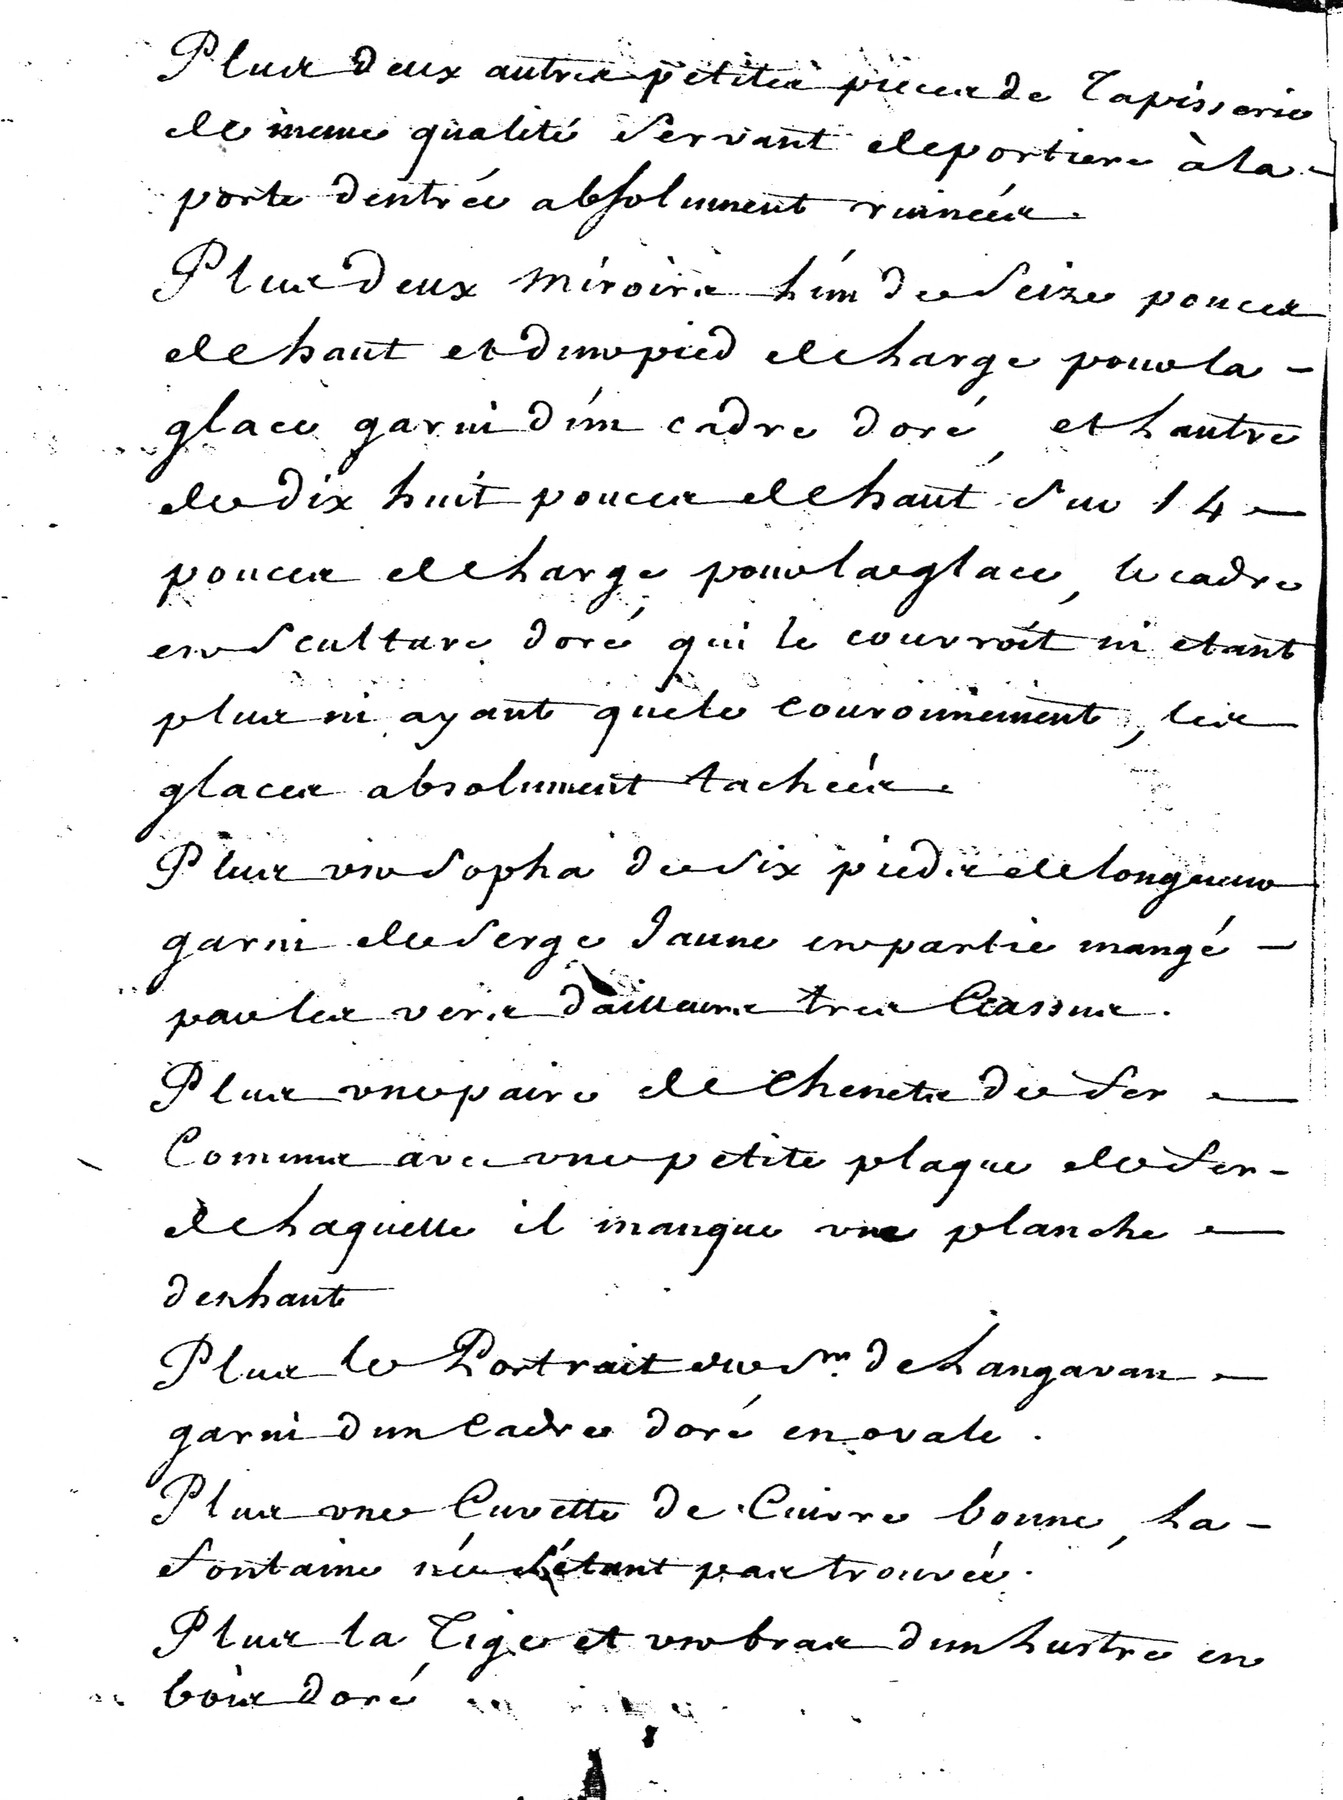 Plus deux autres petites pieces de Tapisserie
de meme qualité Servant de portiere à la -
porte dentrée absolument ruinées.
Plus deux Miroirs lún de Seize pouces
de haut et dun pied de large pour la -
glace garni dún cadre doré, et lautre
de dix huit pouces de haut Sur 14 -
pouces de large pour la glace, le cadre
en Sculture doré qui le couvroit ni etant
plus ni ayant que le couronnement, les
glaces absolument tachées.
Plus un Sopha de Six pieds de longueur
garni de Serge Jaune en partie mangé -
par les vers dailleurs tres Cassus.
Plus une paire de Chenets de fer -
Communs avec une petite plaque de fer -
de laquelle il manque une planche -
den haut
Plus le Portrait du Sr. de Langavan -
garni dun Cadre doré en ovale.
Plus une Cuvette de Cuivre bonne, la -
fontaine né S'étant pas trouvée.
Plus la Tige et un bras dun lustre en
bois doré